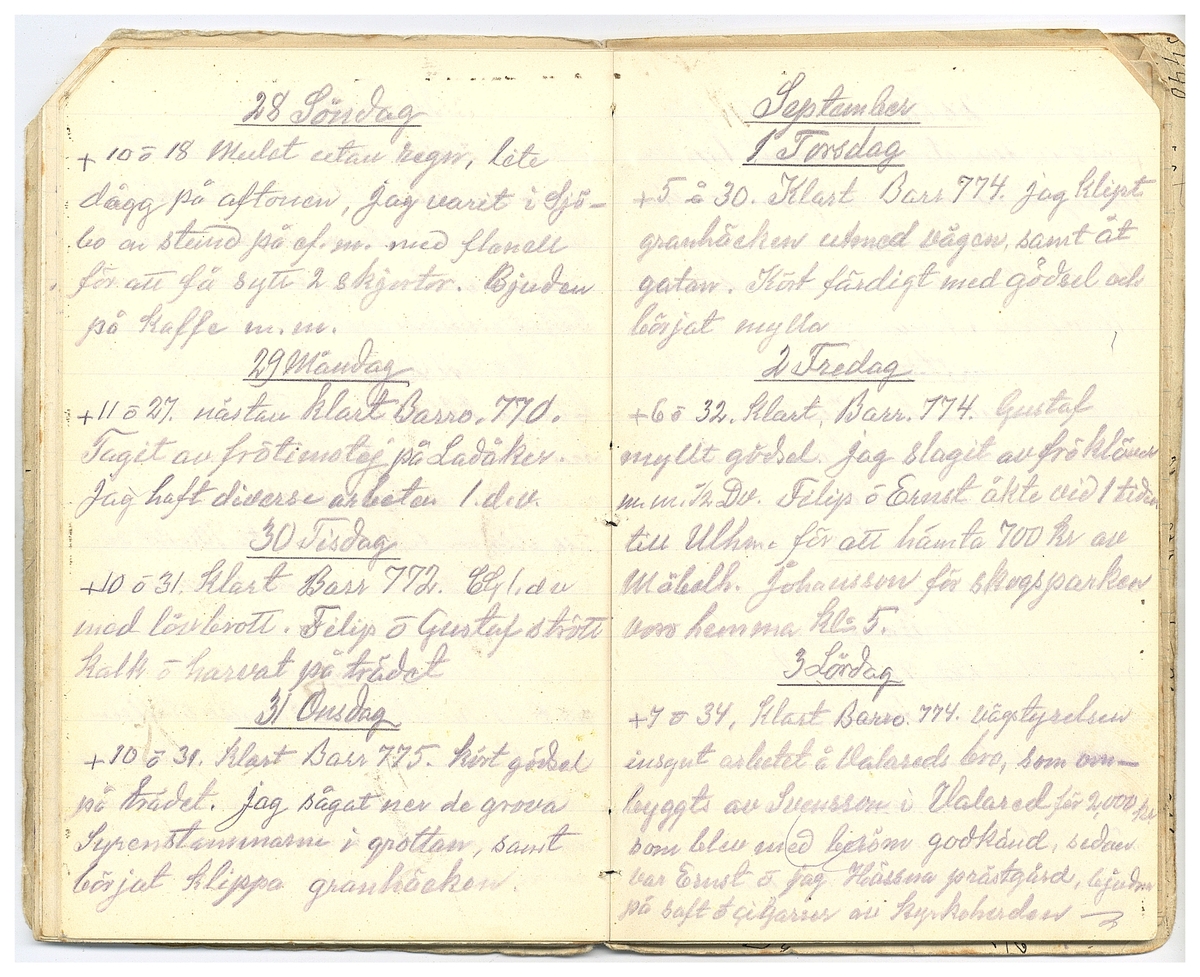 28 Söndag
+ 10 ō 18 Mulet utan regn, lite
dägg på aftonen, jag varit i Sjö-
bo en stund på ef. m. med flanell
för att få sytt 2 skjortor. Bjuden
på kaffe m. m.
29 Måndag
+11 ō 27. nästan klart Barro. 770.
Tagit av frötimotej på Ladåker.
Jag haft diverse arbeten 1. d.v.
30 Tisdag
+10 ō 31. Klart Barr 772. 1. d v
med lövbrott. Filip ō Gustaf strött
kalk ō harvat på trädet
31 Onsdag
+10 ō 31. Klart Barr 775. kört gödsel
på trädet. Jag sågat ner de grova
Syrenstammarne i grottan, samt
börjat klippa granhäcken.
September
1 Torsdag
+5 å 30. Klart Barr 774. jag klipt
granhäcken utmed vägen, samt åt
gatan. Kört färdigt med gödsel och
börjat mylla
2 Fredag
+6 ō 32. Klart, Barr. 774. Gustaf
myllt gödsel. Jag slagit av fröklöver
m. m. 1/2 Dv. Filip ō Ernst åkte vid 1 tiden
till Ulhm. för att hämta 700 kr av
Möbelh. Johansson för skogsparken
voro hemma kl 5.
3 Lördag
+7 ō 34, Klart Barro. 774. vägstyrelsen
insynt arbetet å Valareds bro, som om-
byggts av Svensson i Valared för 2,000 kr
som blev med beröm godkänd, sedan
var Ernst ō jag Hössna prästgård, bjudna
på saft ō cigarrer av kyrkoherden
5440